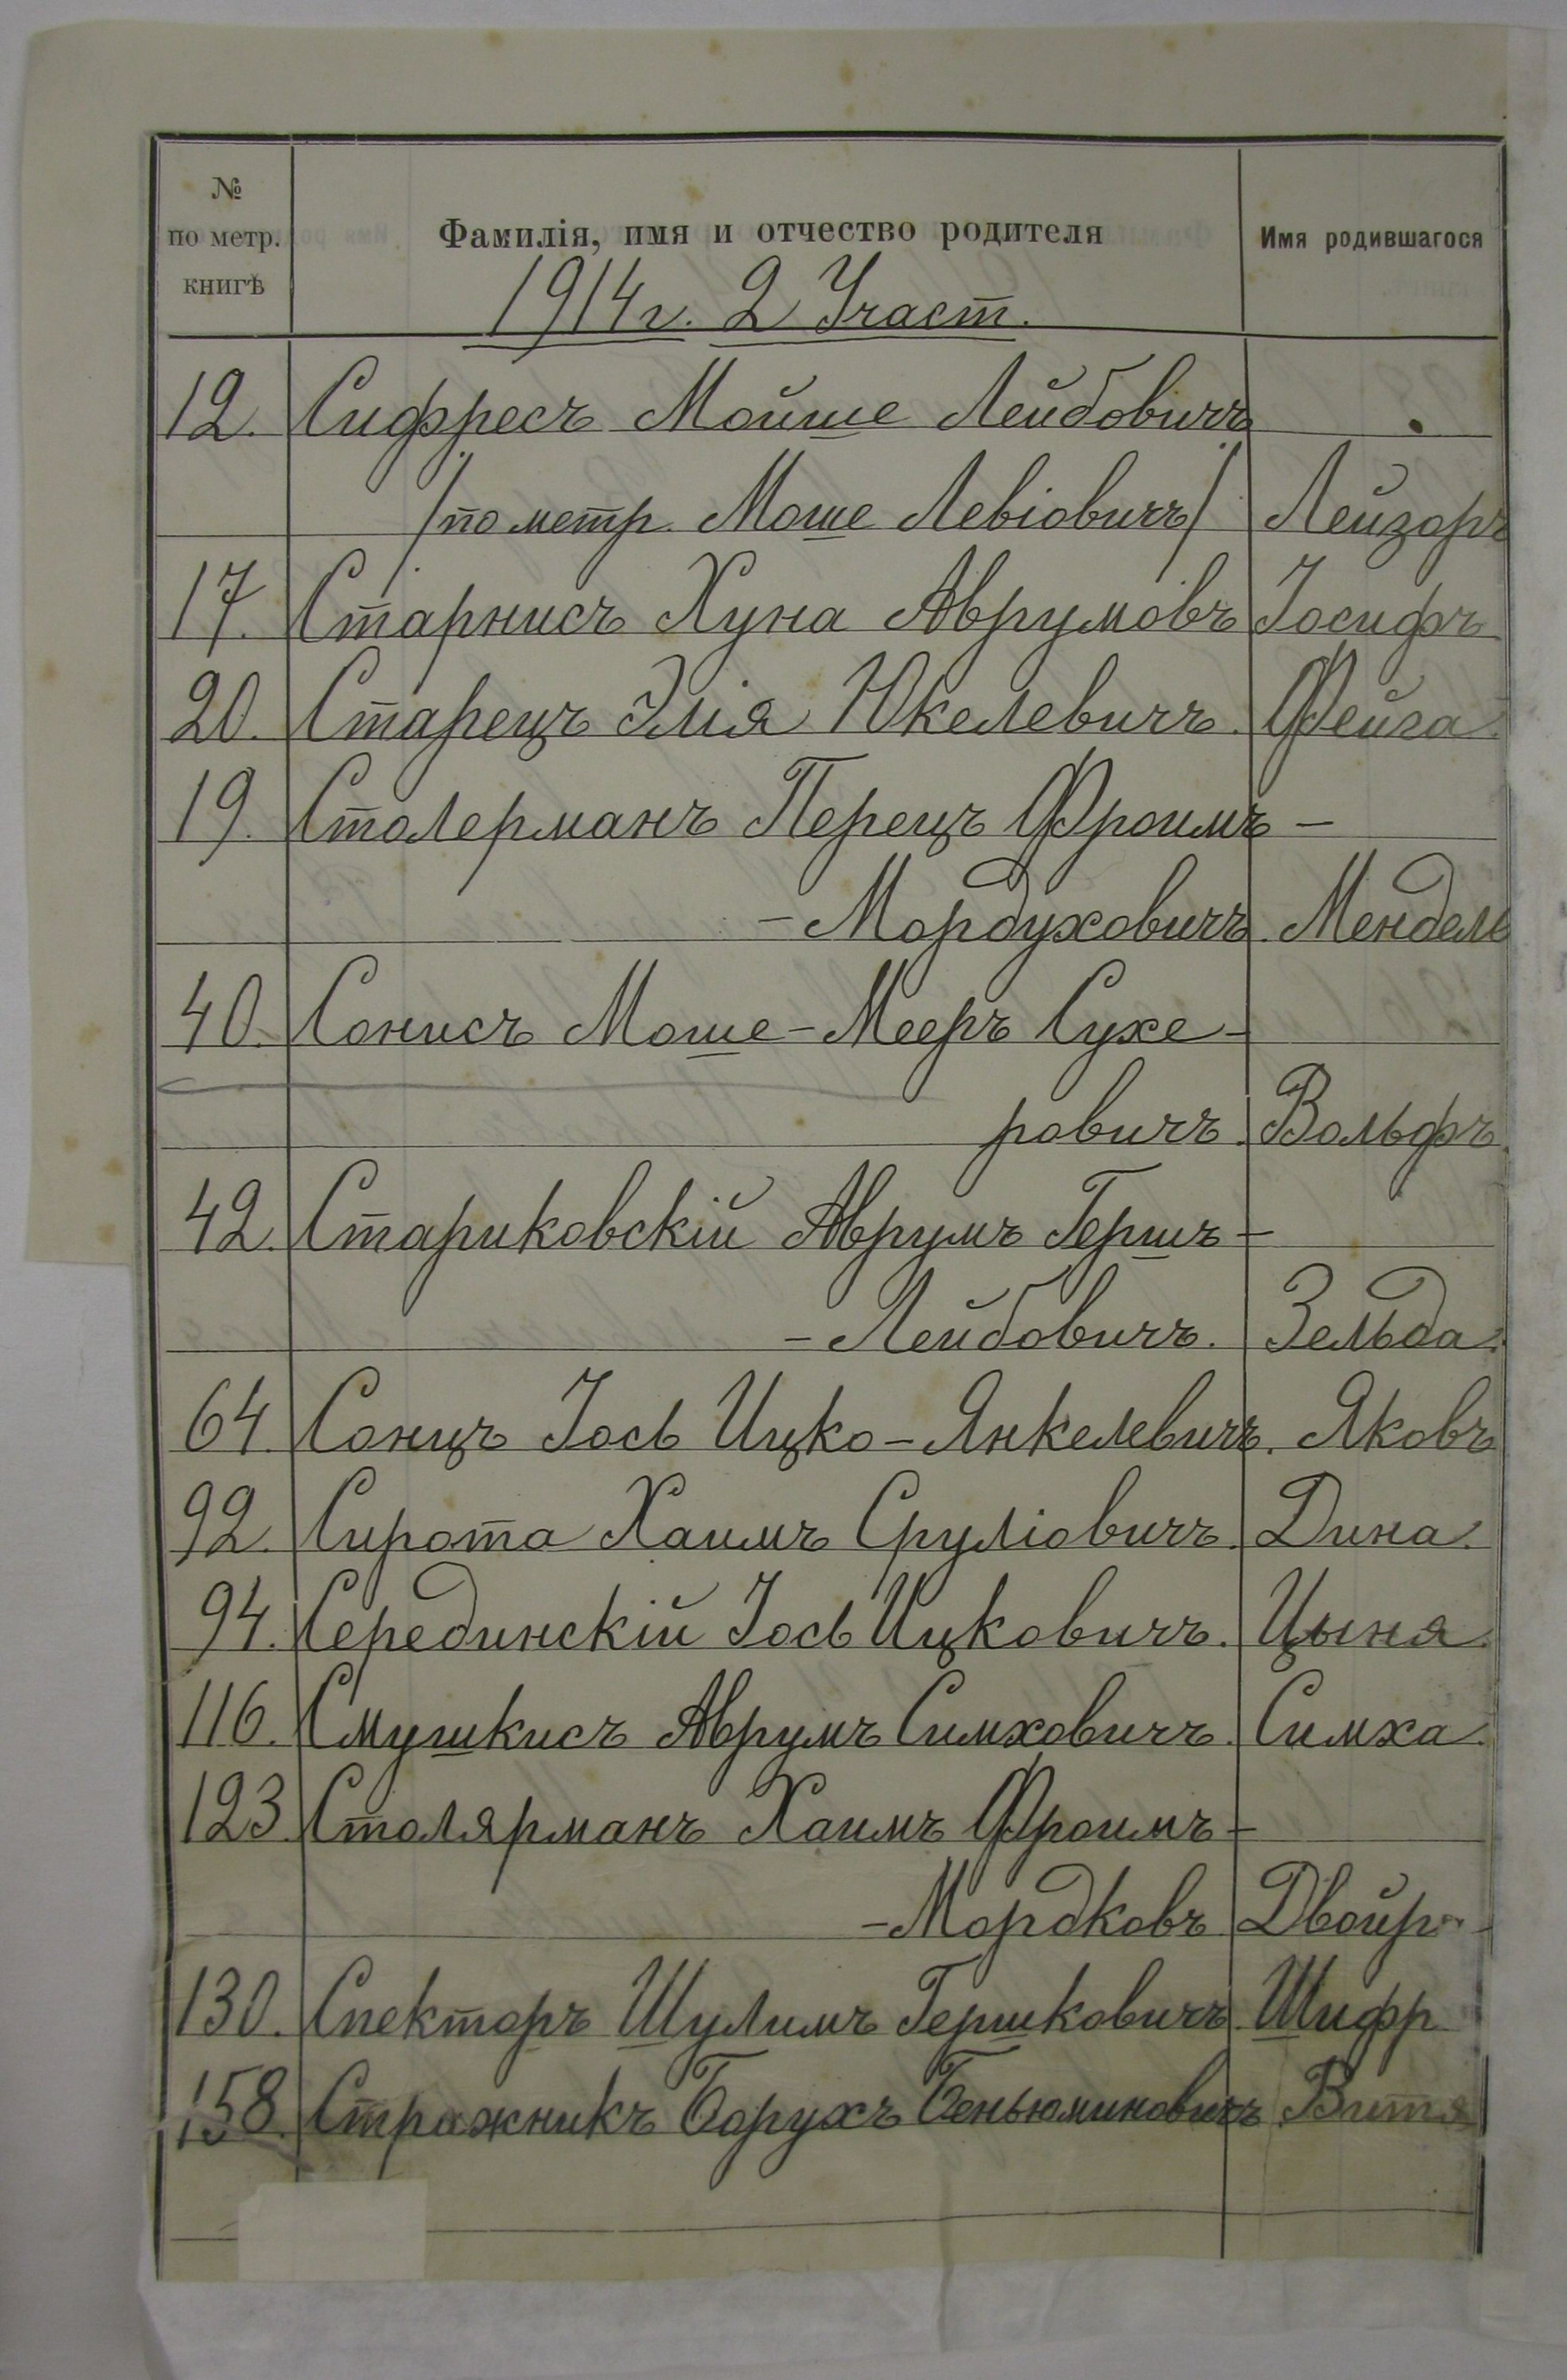 №
по метр.
книгѣ
Фамилія, имя и отчество родителя
Имя родившагося
1914 г. 2 Участ.
12. Сифресъ Мойше Лейбовичъ
/по метр. Моше Левіовичъ/ Лейзоръ
17. Старнисъ Хуна Аврумовъ Іосифъ
20. Старецъ Элія Юкелевичъ. Фейга.
19. Столерманъ Перецъ Фроимъ-
-Мордуховичъ. Мендель
40. Сонисъ Моше-Мееръ Сухе-
ровичъ. Вольфъ.
42. Стариковскій Аврумъ Гершъ-
-Лейбовичъ. Зельда.
64. Сонцъ Іось Ицко-Янкелевичъ. Яковъ
92. Сирота Хаимъ Cруліовичъ. Дина.
94. Серединскій Іось Ицковичъ. Цыня.
116. Смушкисъ Аврумъ Симховичъ. Симха.
123. Столярманъ Хаимъ Фроимъ-
-Мордковъ Двойр
130. Спекторъ Шулимъ Гершковичъ Шифр
158. Стражникъ Борухъ Беньюминовичъ Витя